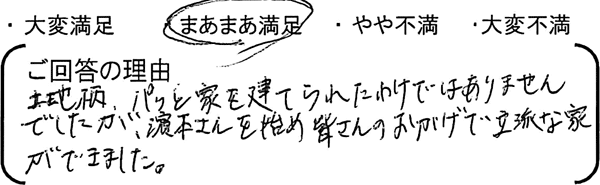 ・大変満足 ・まあまあ満足 ・やや不満 ・大変不満
ご回答の理由
土地柄、パッと家を建てられたわけではありません
でしたが、濱本さんを始め皆さんのおかげで立派な家
ができました。